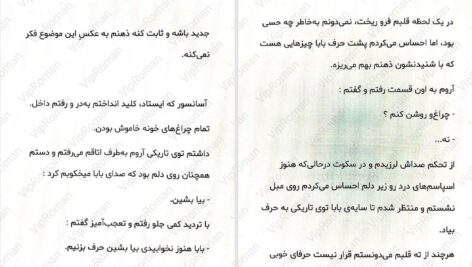 جدید باشه و ثابت کنه ذهنم به عکسِ این موضوع فکر
نمی‌کنه.
آسانسور که ایستاد، کلید انداختم به‌در و رفتم داخل.
تمام چراغ‌های خونه خاموش بودن.
داشتم توی تاریکی آروم به‌طرف اتاقم می‌رفتم و دستم
همچنان روی دلم بود که صدای بابا میخکوبم کرد :
- بیا بشین.
با تردید کمی جلو رفتم و تعجب‌آمیز گفتم :
- بابا هنوز نخوابیدی بیا بشین حرف بزنیم.
در یک لحظه قلبم فرو ریخت، نمی‌دونم به‌خاطر چه حسی
بود، اما احساس می‌کردم پشت حرف بابا چیزهایی هست
که با شنیدنشون ذهنم بهم می‌ریزه.
آروم به اون قسمت رفتم و گفتم :
- چراغ‌و روشن کنم ؟
- نه...
از تحکم صداش لرزیدم و در سکوت درحالی‌که هنوز
اسپاسم‌های درد رو زیر دلم احساس می‌کردم روی مبل
نشستم و منتظر شدم تا سایه‌ی بابا توی تاریکی به حرف
بیاد.
هرچند از ته قلبم می‌دونستم قرار نیست حرفای خوبی
VipRoman